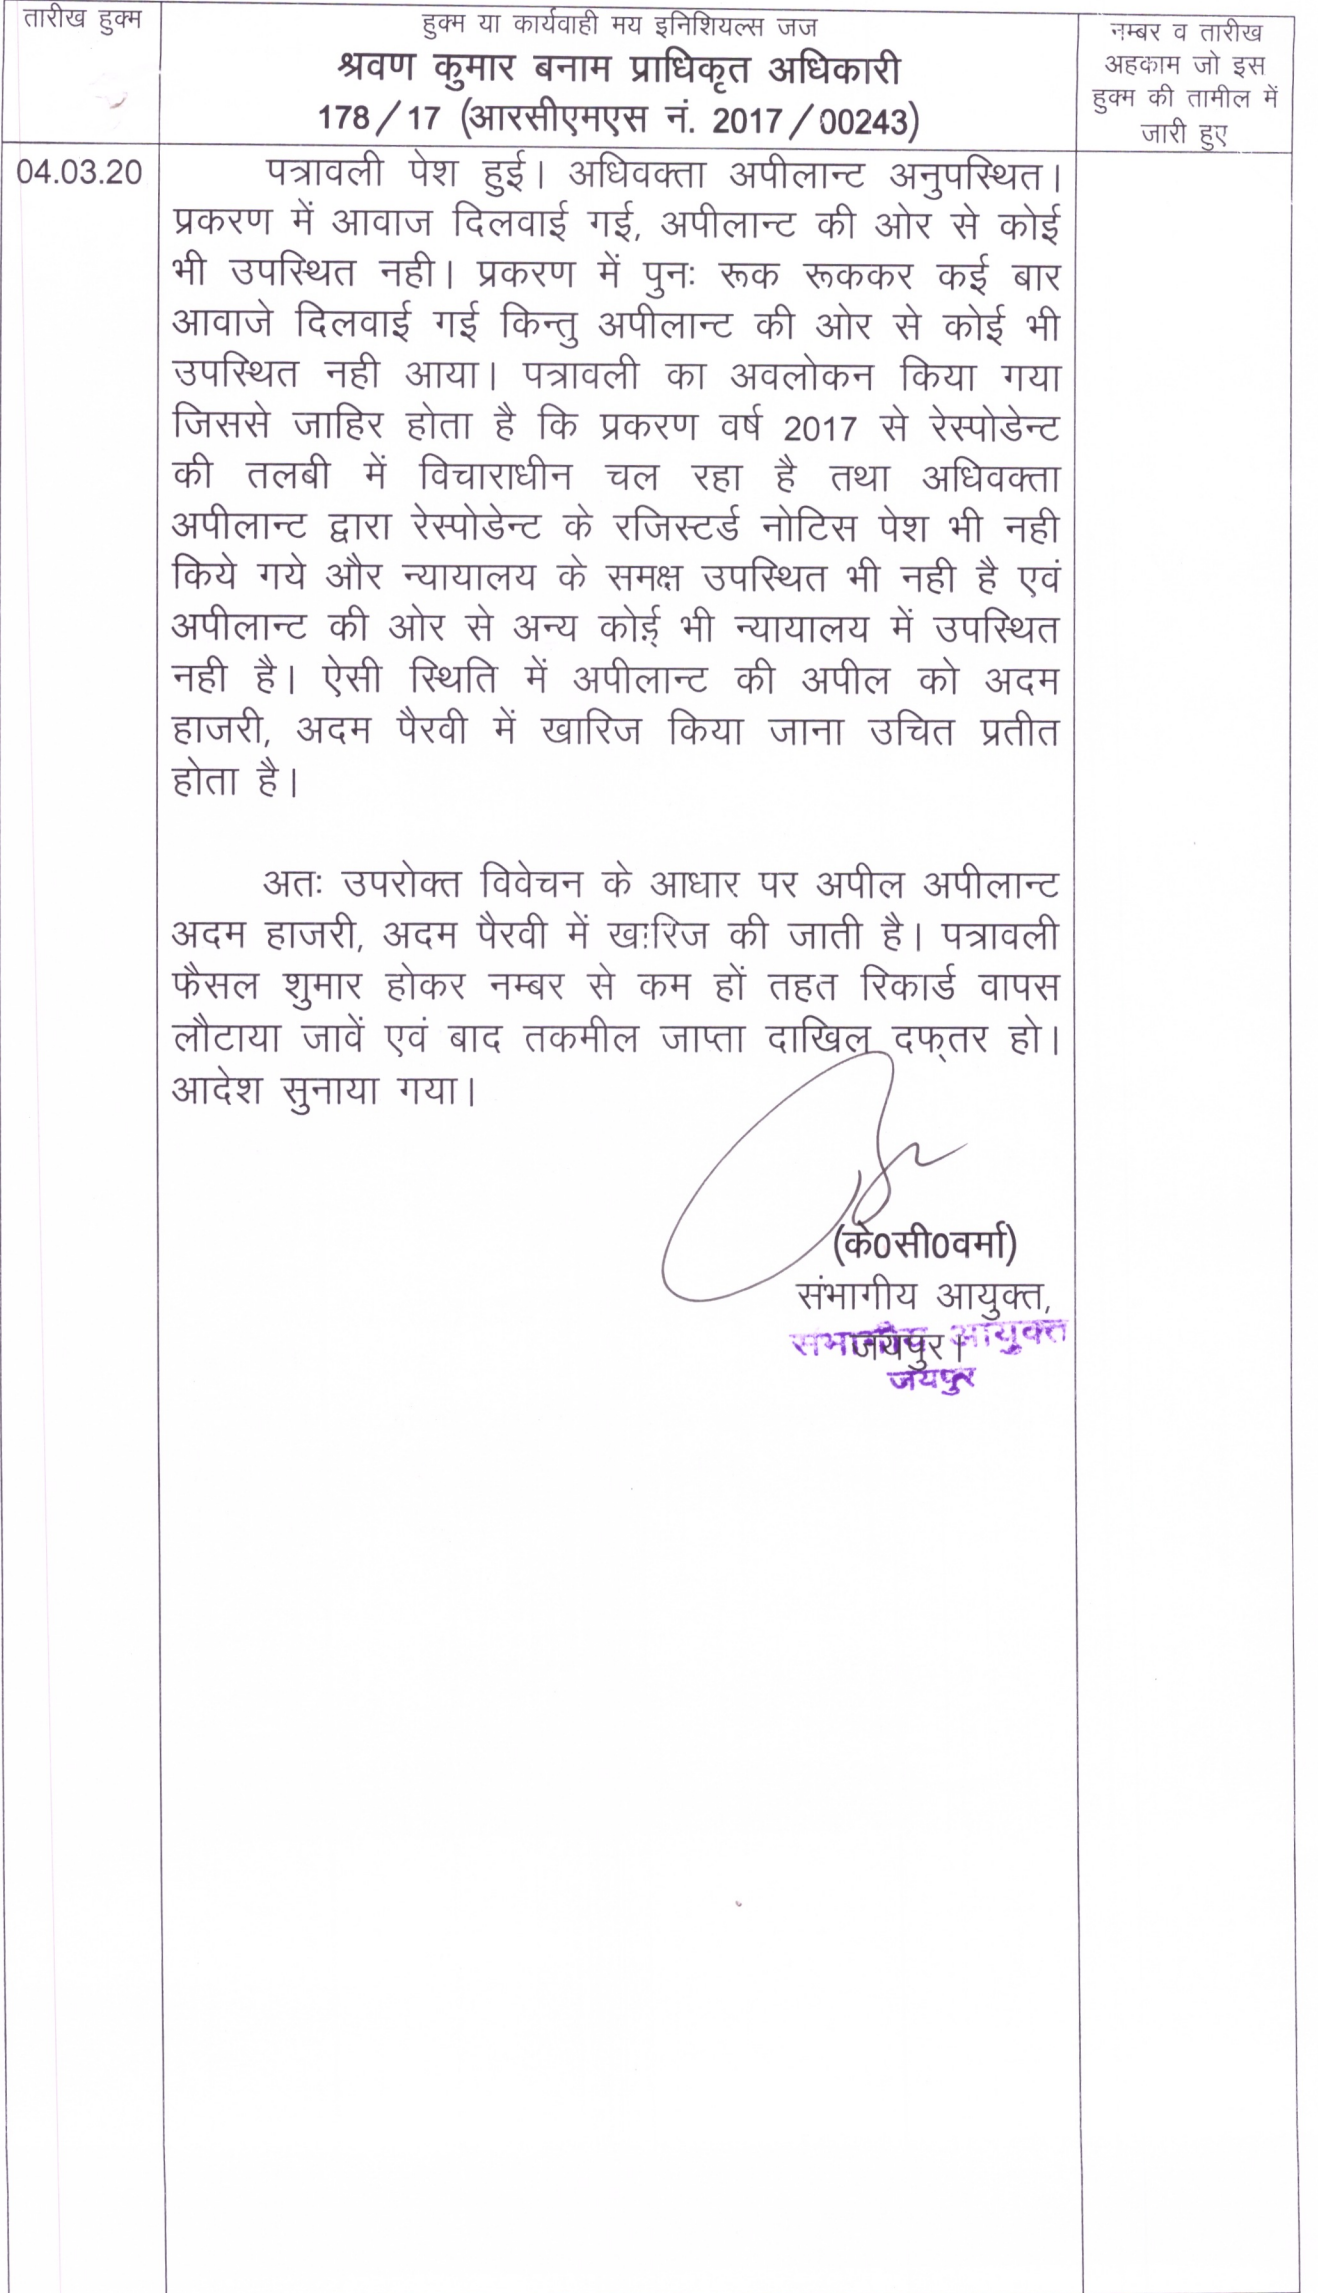 तारीख हुक्म
हुक्म या कार्यवाही मय इनिशियल्स जज
श्रवण कुमार बनाम प्राधिकृत अधिकारी
178/17 (आरसीएमएस नं. 2017/00243)
नम्बर व तारीख
अहकाम जो इस
हुक्म की तामील में
जारी हुए
04.03.20
पत्रावली पेश हुई। अधिवक्ता अपीलान्ट अनुपस्थित।
प्रकरण में आवाज दिलवाई गई, अपीलान्ट की ओर से कोई
भी उपस्थित नही। प्रकरण में पुनः रूक रूककर कई बार
आवाजे दिलवाई गई किन्तु अपीलान्ट की ओर से कोई भी
उपस्थित नही आया। पत्रावली का अवलोकन किया गया
जिससे जाहिर होता है कि प्रकरण वर्ष 2017 से रेस्पोडेन्ट
की तलबी में विचाराधीन चल रहा है तथा अधिवक्ता
अपीलान्ट द्वारा रेस्पोडेन्ट के रजिस्टर्ड नोटिस पेश भी नही
किये गये और न्यायालय के समक्ष उपस्थित भी नही है एवं
अपीलान्ट की ओर से अन्य कोई भी न्यायालय में उपस्थित
नही है। ऐसी स्थिति में अपीलान्ट की अपील को अदम
हाजरी, अदम पैरवी में खारिज किया जाना उचित प्रतीत
होता है।
अतः उपरोक्त विवेचन के आधार पर अपील अपीलान्ट
अदम हाजरी, अदम पैरवी में खारिज की जाती है। पत्रावली
फैसल शुमार होकर नम्बर से कम हों तहत रिकार्ड वापस
लौटाया जावें एवं बाद तकमील जाप्ता दाखिल दफ्तर हो।
आदेश सुनाया गया।
(के0सी0वर्मा)
संभागीय आयुक्त,
जयपुर।
संभागीय आयुक्त
जयपुर